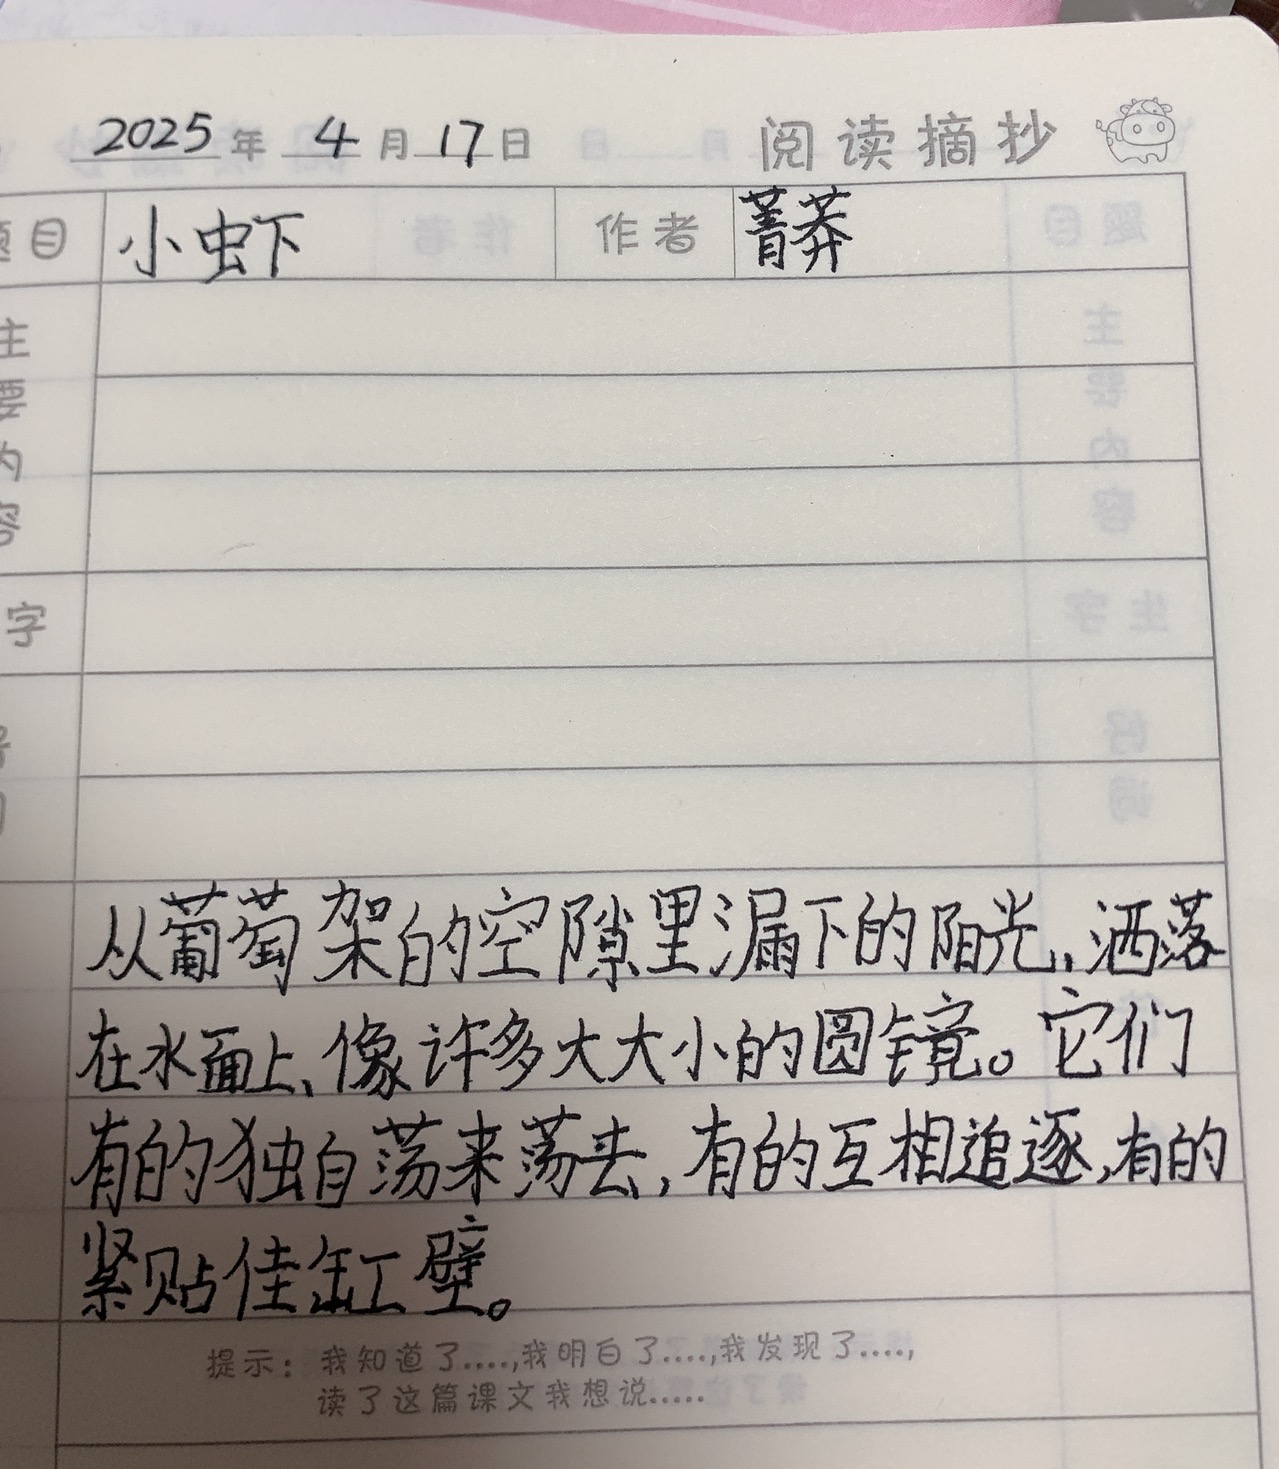 2025年 4月17日 阅读摘抄
题目 小虾 作者 菁莽
主
要
内
容
字
从葡萄架的空隙里漏下的阳光,洒落
在水面上、像许多大大小的圆镜。它们
有的独自荡来荡去,有的互相追逐,有的
紧贴佳缸壁。
提示：我知道了....,我明白了....,我发现了....,
读了这篇课文我想说.....